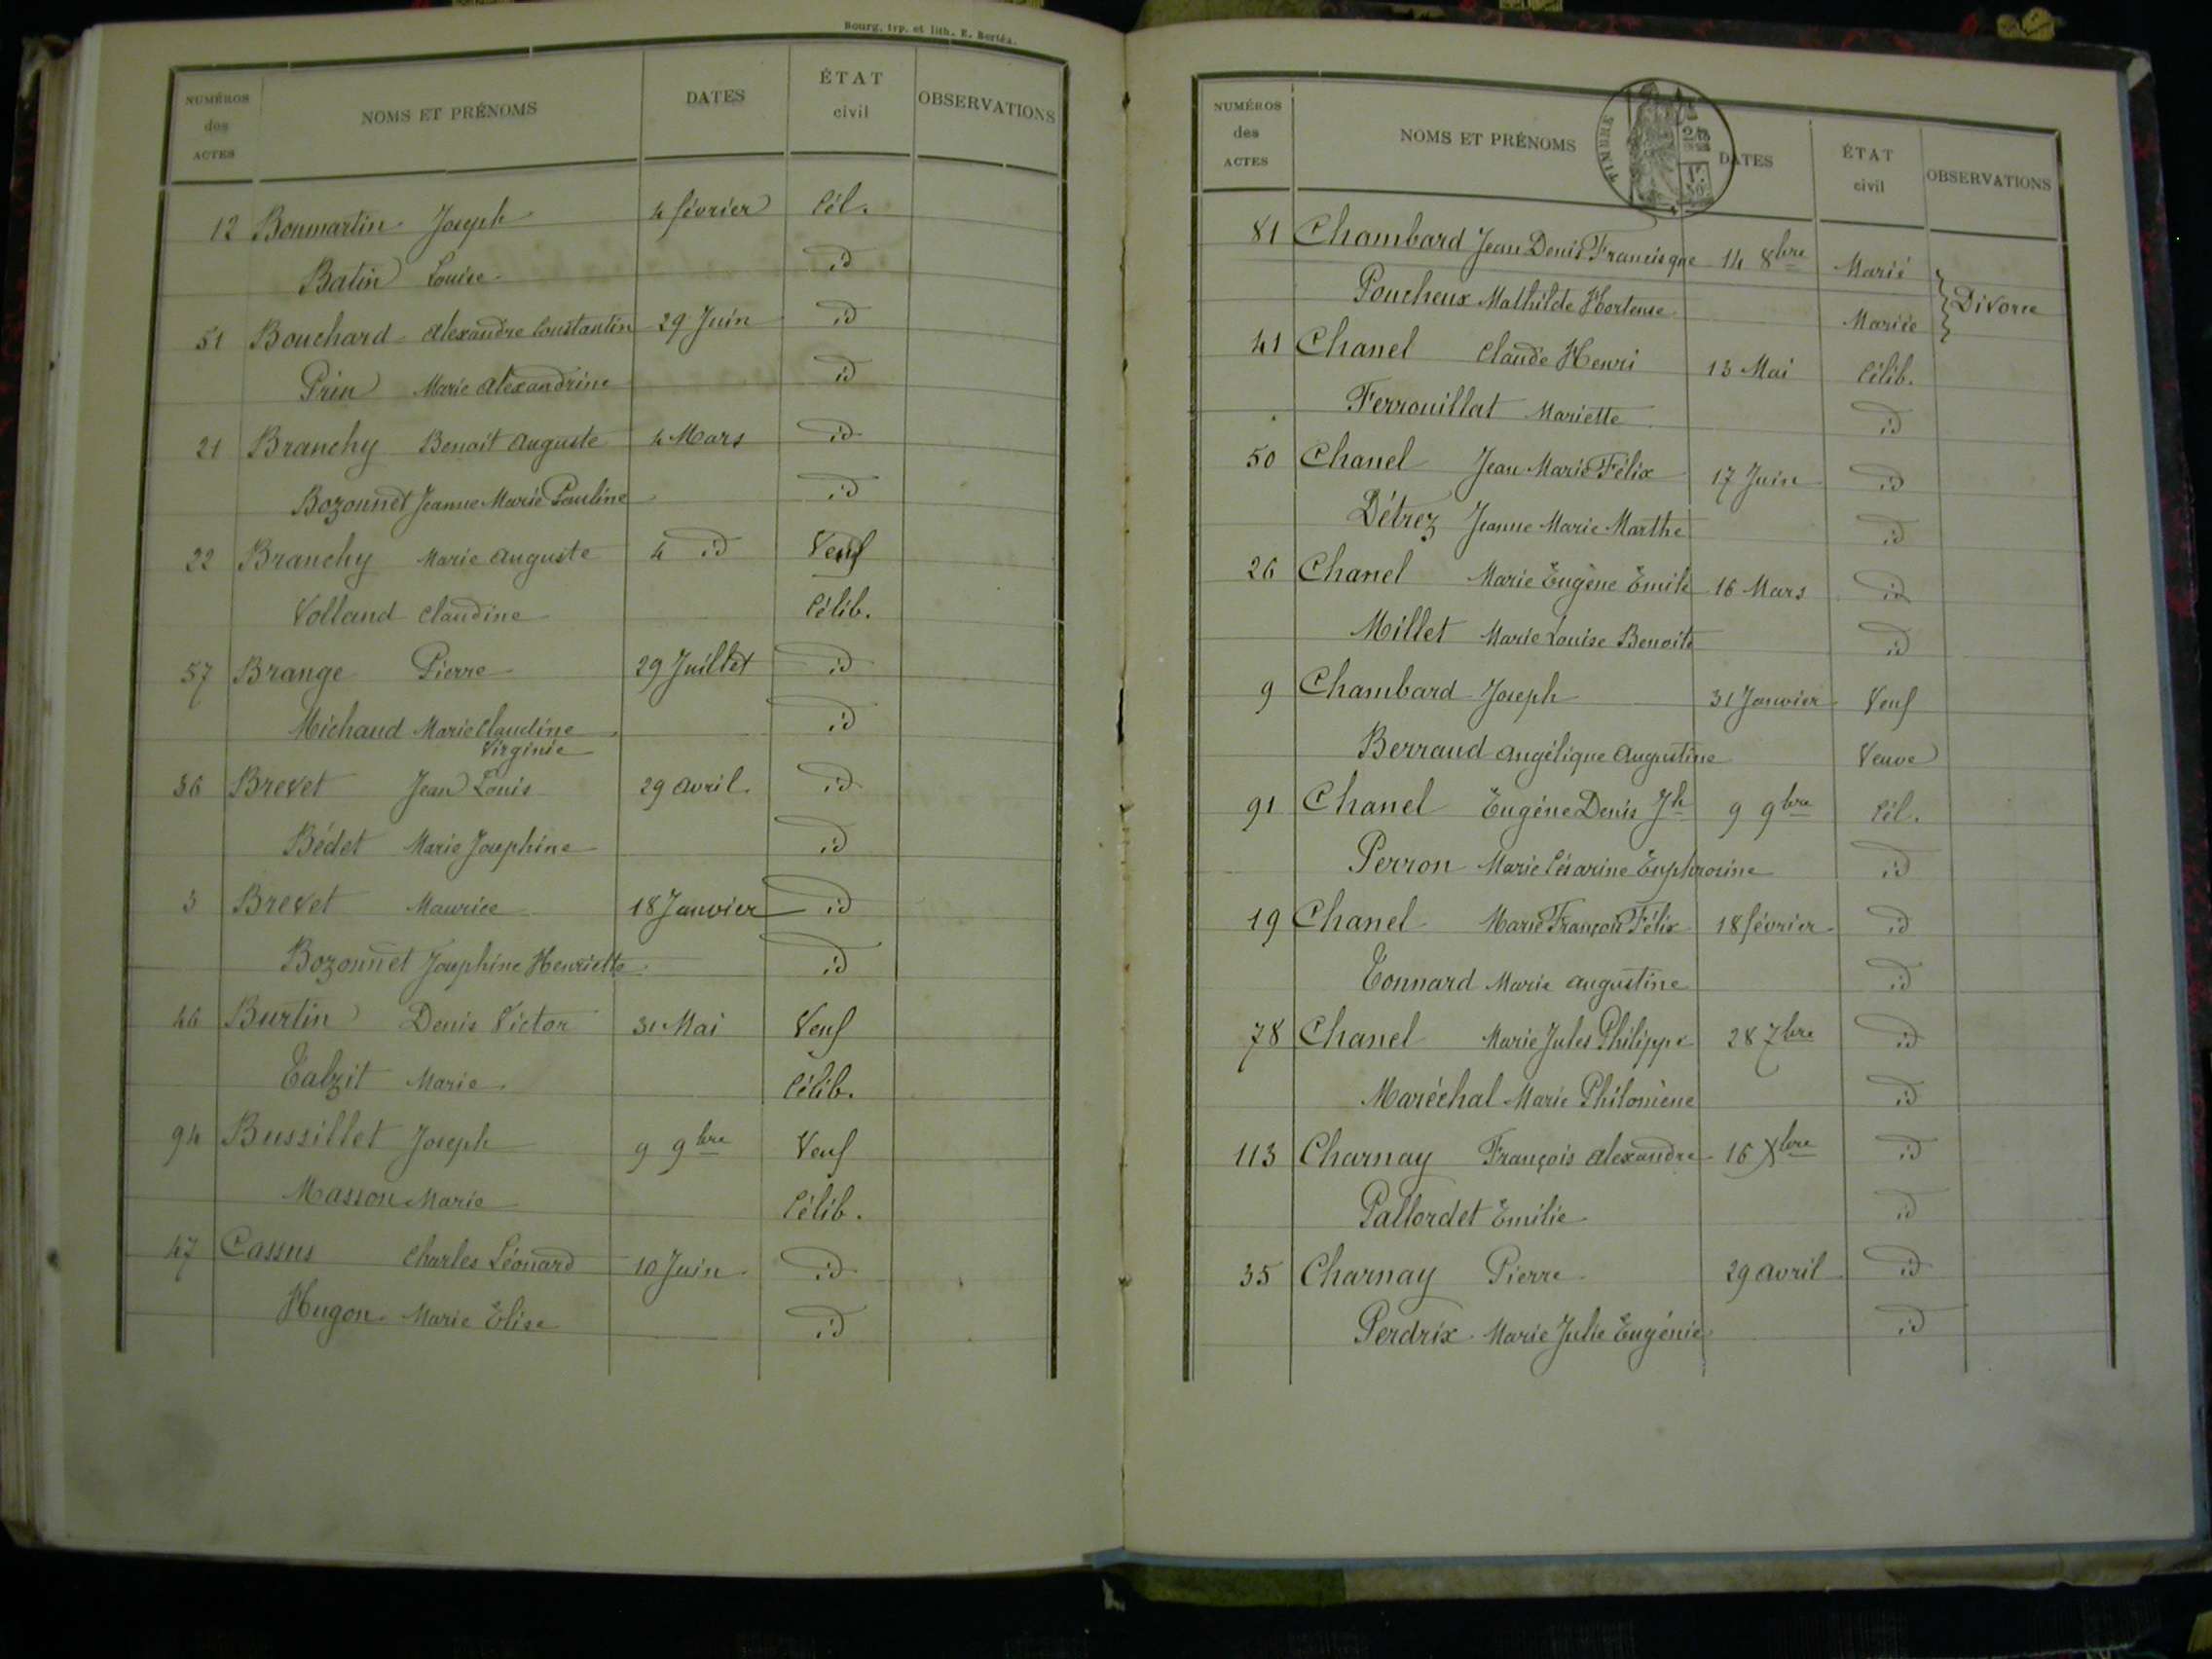 Bourg, typ. et lith. E. Bertéa.
NUMÉROS des ACTES NOMS ET PRÉNOMS DATES ÉTAT civil OBSERVATIONS
12 Bonmartin Joseph 4 février Cél.
Batin Louise id
51 Bouchard Alexandre Constantin 29 Juin id
Prin Marie Alexandrine id
21 Branchy Benoit Auguste 4 Mars id
Bozonnet Jeanne Marie Pauline id
22 Branchy Marie Auguste 4 id Veuf
Volland Claudine Célib.
57 Brange Pierre 29 Juillet id
Michaud Marie Claudine id
Virginie
36 Brevet Jean Louis 29 Avril id
Bédet Marie Josephine id
3 Brevet Maurice 18 Janvier id
Bozonnet Josephine Henriette id
46 Burtin Denis Victor 31 Mai Veuf
Talzit Marie Célib.
94 Bussillet Joseph 9 9bre Veuf
Masson Marie Célib.
47 Cassus Charles Léonard 10 Juin id
Hugon Marie Elise id
NUMÉROS des ACTES NOMS ET PRÉNOMS DATES ÉTAT civil OBSERVATIONS
TIMBRE
81 Chambard Jean Denis Francisque 14 8bre Marié
Poucheux Mathilde Hortense Mariée Divorce
41 Chanel Claude Henri 13 Mai Célib.
Ferrouillat Mariette id
50 Chanel Jean Marie Félix 17 Juin id
Détrez Jeanne Marie Marthe id
26 Chanel Marie Eugène Emile 16 Mars id
Millet Marie Louise Benoite id
9 Chambard Joseph 31 Janvier Veuf
Berraud Angélique Augustine Veuve
91 Chanel Eugène Denis Jh 9 9bre Cél.
Perron Marie Césarine Euphrosine id
19 Chanel Marie François Félix 18 février id
Tonnard Marie Augustine id
78 Chanel Marie Jules Philippe 28 7bre id
Maréchal Marie Philomène id
113 Charnay François Alexandre 16 Xbre id
Pallordet Emilie id
35 Charnay Pierre 29 Avril id
Perdrix Marie Julie Eugénie id